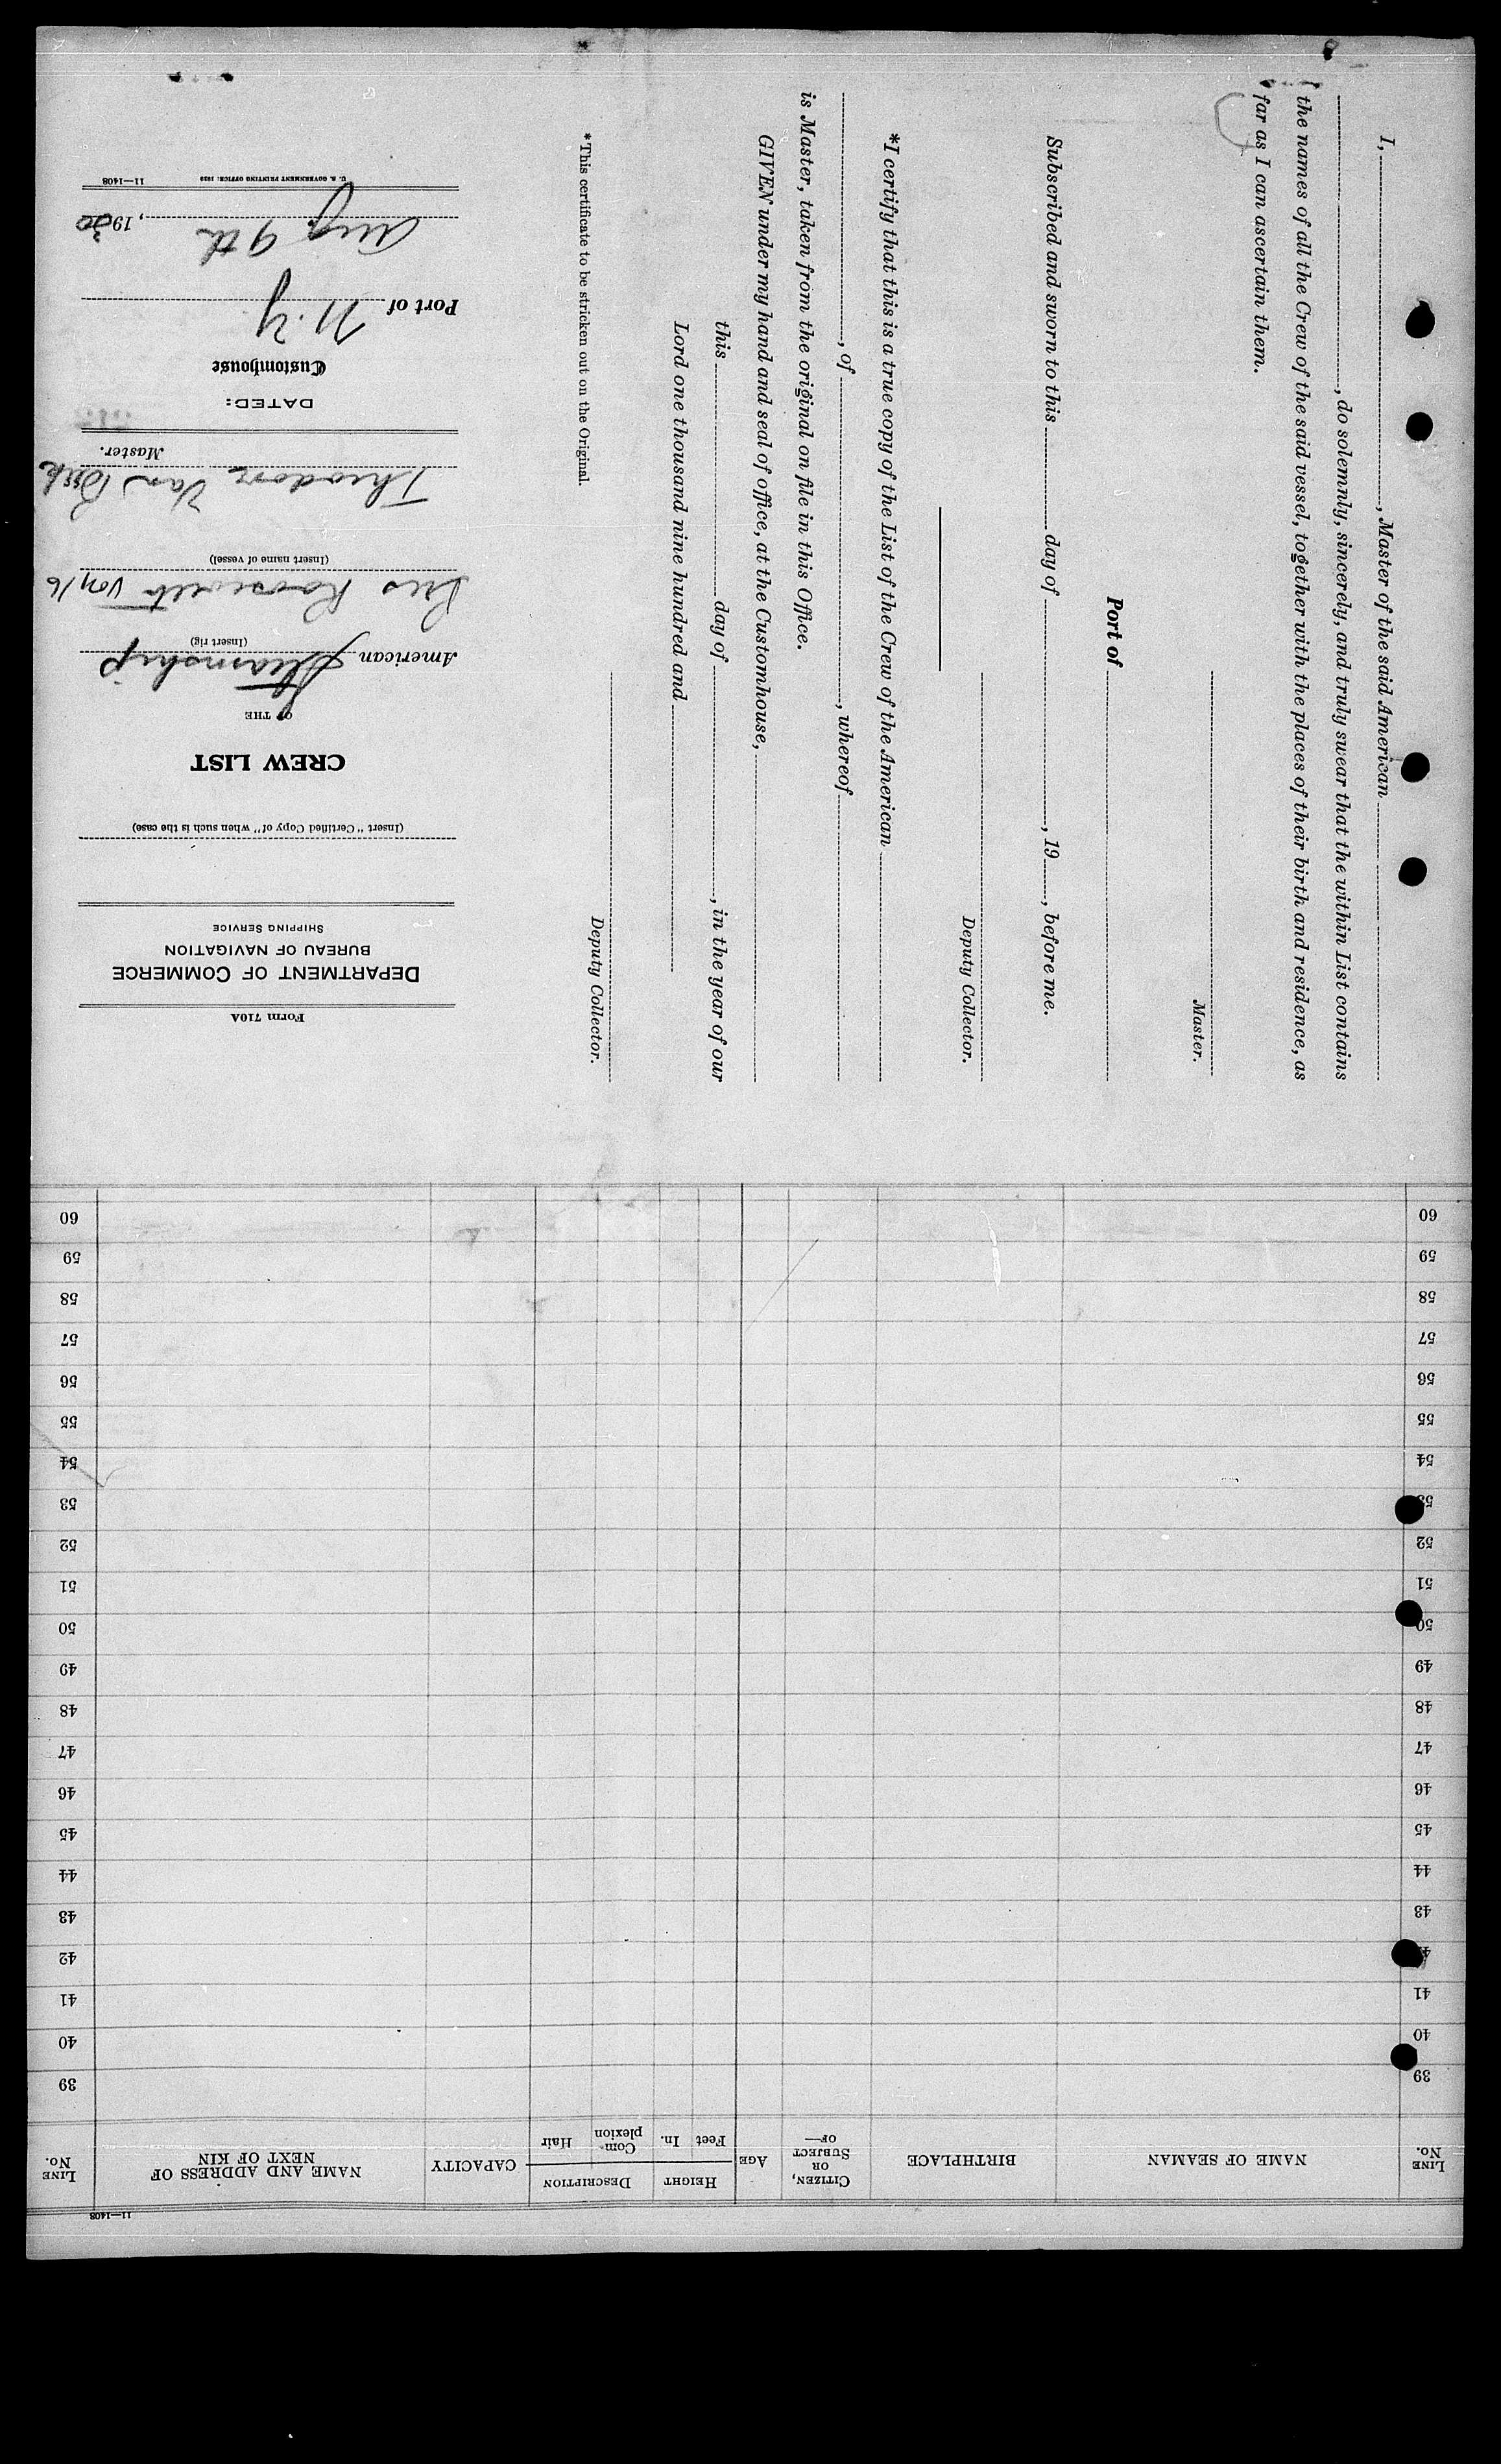 Form 710A
DEPARTMENT OF COMMERCE
BUREAU OF NAVIGATION
SHIPPING SERVICE
(Insert "Certified Copy of" when such is the case)
CREW LIST
OF THE
American Steamship
(Insert rig)
Pres Roosevelt Voy 16
(Insert name of vessel)
Theodore Van
Master.
DATED:
Customhouse
Port of N.Y
Aug. 9th, 1930
11—1408
I, , Master of the said American
, do solemnly, sincerely, and truly swear that the within List contains
the names of all the Crew of the said vessel, together with the places of their birth and residence, as
far as I can ascertain them.
Master.
Port of
Subscribed and sworn to this day of , 19 , before me.
Deputy Collector.
*I certify that this is a true copy of the List of the Crew of the American
, of , whereof
is Master, taken from the original on file in this Office.
GIVEN under my hand and seal of office, at the Customhouse,
this day of , in the year of our
Lord one thousand nine hundred and
Deputy Collector.
*This certificate to be stricken out on the Original.
11—1408
LINE No. NAME OF SEAMAN BIRTHPLACE CITIZEN, OR SUBJECT OF— AGE HEIGHT Feet In. DESCRIPTION Complexion Hair CAPACITY NAME AND ADDRESS OF NEXT OF KIN LINE No.
39 39
40 40
41 41
42
43 43
44 44
45 45
46 46
47 47
48 48
49 49
50 50
51 51
52 52
53 53
54 54
55 55
56 56
57 57
58 58
59 59
60 60